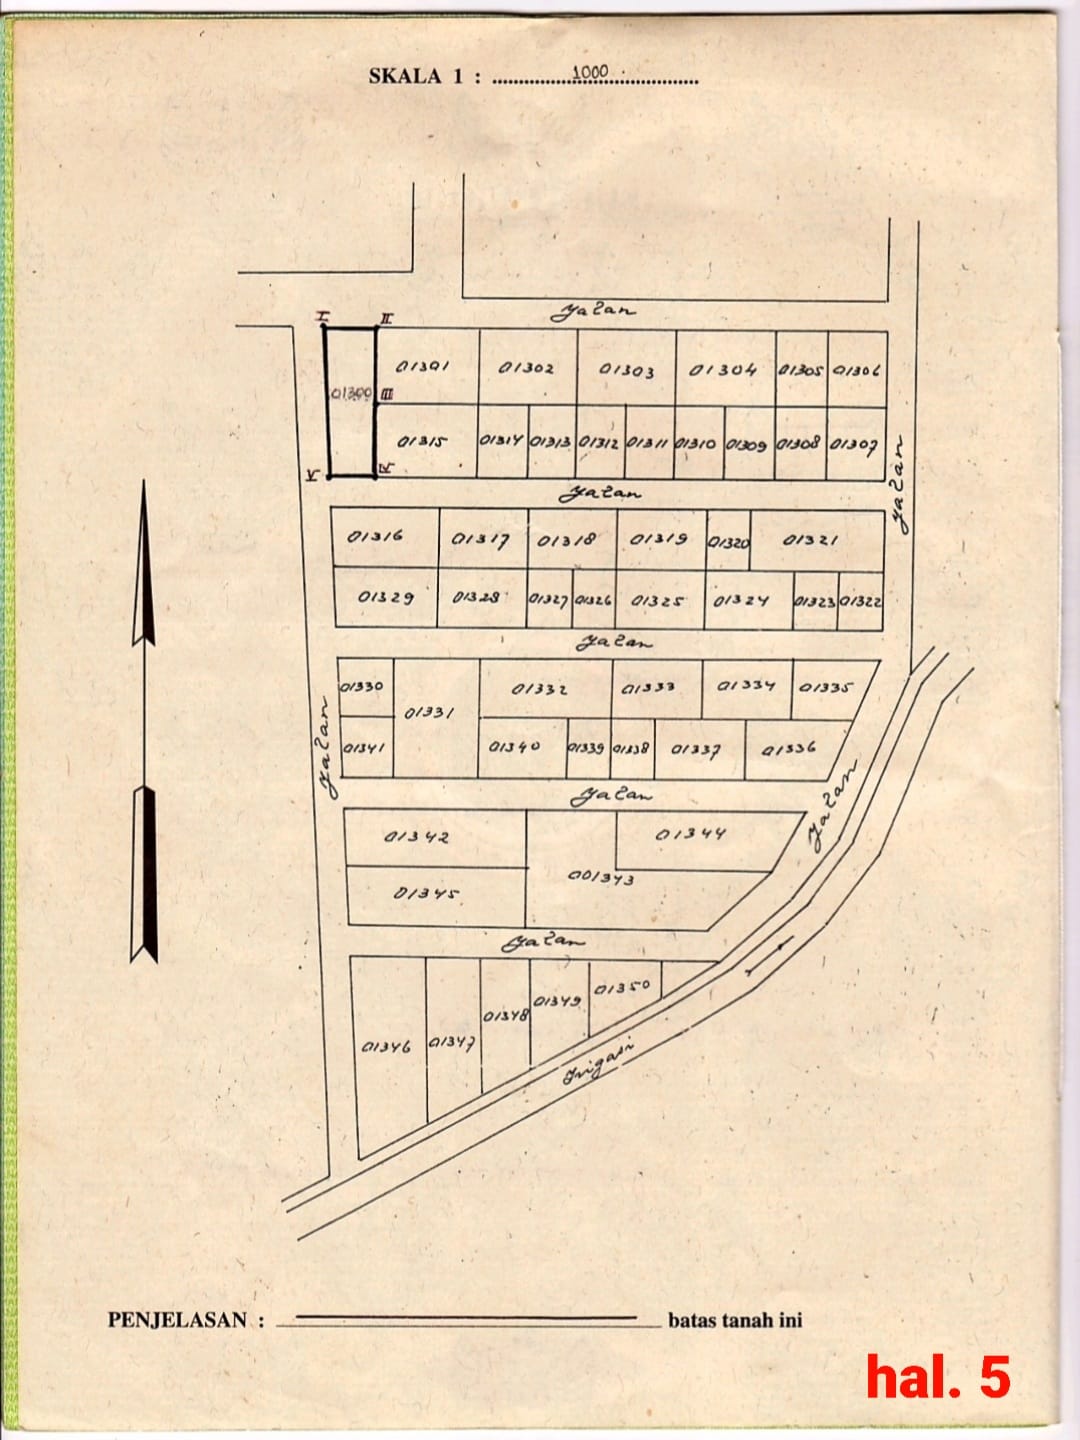 SKALA 1 : 1000
Jalan
I II
01301 01302 01303 01304 01305 01306
01300 III
01315 01314 01313 01312 01311 01310 01309 01308 01307
V IV
Jalan
Jalan
01316 01317 01318 01319 01320 01321
01329 01328 01327 01326 01325 01324 01323 01322
Jalan
01330 01331 01332 01333 01334 01335
01341 01340 01339 01338 01337 01336
Jalan
Jalan
Jalan
01342 01344
001343
01345
Jalan
01346 01347 01348 01349 01350
Irigasi
PENJELASAN : batas tanah ini
hal. 5